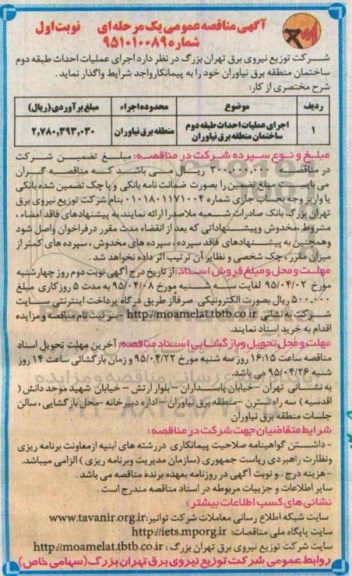 آگهی مناقصه عمومی یک مرحله ای نوبت اول
شماره ۹۵۱۰۱۰۰۸۹
شرکت توزیع نیروی برق تهران بزرگ در نظر دارد اجرای عملیات احداث طبقه دوم
ساختمان منطقه برق نیاوران خود را به پیمانکار واجد شرایط واگذار نماید.
شرح مختصری از کار:
ردیف موضوع محدوده اجراء مبلغ برآوردی (ریال)
۱ اجرای عملیات احداث طبقه دوم ساختمان منطقه برق نیاوران منطقه برق نیاوران ۲,۷۸۰,۳۹۳,۰۳۰
مبلغ و نوع سپرده شرکت در مناقصه: مبلغ تضمین شرکت
در مناقصه ریال می باشد که مناقصه گران
می بایست مبلغ تضمین را بصورت ضمانت نامه بانکی و یا چک تضمین شده بانکی
یا واریز وجه بحساب جاری شماره ۰۱۰۱۸۰۱۱۷۱۰۰۴ بنام شرکت توزیع نیروی برق
تهران بزرگ بانک صادرات شعبه ملاصدرا ارائه نمایند. به پیشنهادهای فاقد امضاء،
مشروط، مخدوش و پیشنهاداتی که بعد از انقضاء مدت مقرر در فراخوان واصل شود
وهمچنین به پیشنهادهای فاقد سپرده، سپرده های مخدوش، سپرده های کمتر از
میزان مقرر، چک شخصی و نظایر آن ترتیب اثر داده نخواهد شد.
مهلت و محل و مبلغ فروش اسناد: از تاریخ درج آگهی نوبت دوم روز چهارشنبه
مورخ ۹۵/۰۴/۰۲ لغایت سه شنبه مورخ ۹۵/۰۴/۰۸ به مدت ۵ روز کاری مبلغ
۵۰۰,۰۰۰ ریال بصورت الکترونیکی صرفاً از طریق درگاه پرداخت اینترنتی سایت
شرکت به نشانی http://moamelat.tbtb.co.ir - برگشت نام مناقصه و مزایده
اقدام به خرید اسناد نمایند.
مهلت و محل تحویل و بازگشایی اسناد مناقصه: آخرین مهلت تحویل اسناد
مناقصه ساعت ۱۶:۱۵ روز سه شنبه مورخ ۹۵/۰۴/۲۲ و زمان بازگشائی ساعت ۱۴ روز
شنبه مورخ ۹۵/۰۴/۲۶ می باشد.
به نشانی تهران - خیابان پاسداران - بلوار ارتش - خیابان شهید موحد دانش (
اقدسیه) سه راه نسترن - منطقه برق نیاوران - اداره دبیرخانه - محل بازگشایی، سالن
جلسات منطقه برق نیاوران
شرایط متقاضیان جهت شرکت در مناقصه:
- داشتن گواهینامه صلاحیت پیمانکاری در رشته های ابنیه از معاونت برنامه ریزی
ونظارت راهبردی ریاست جمهوری (سازمان مدیریت وبرنامه ریزی) الزامی میباشد.
- هزینه درج دو نوبت آگهی در روزنامه بعهده برنده مناقصه می باشد.
سایر اطلاعات و جزییات مربوطه در اسناد مناقصه مندرج است.
نشانی های کسب اطلاعات بیشتر:
سایت شبکه اطلاع رسانی معاملات شرکت توانیر: www.tavanir.org.ir
سایت پایگاه ملی مناقصات: http://iets.mporg.ir
سایت شرکت توزیع نیروی برق تهران بزرگ: http://moamelat.tbtb.co.ir
روابط عمومی شرکت توزیع نیروی برق تهران بزرگ (سهامی خاص)